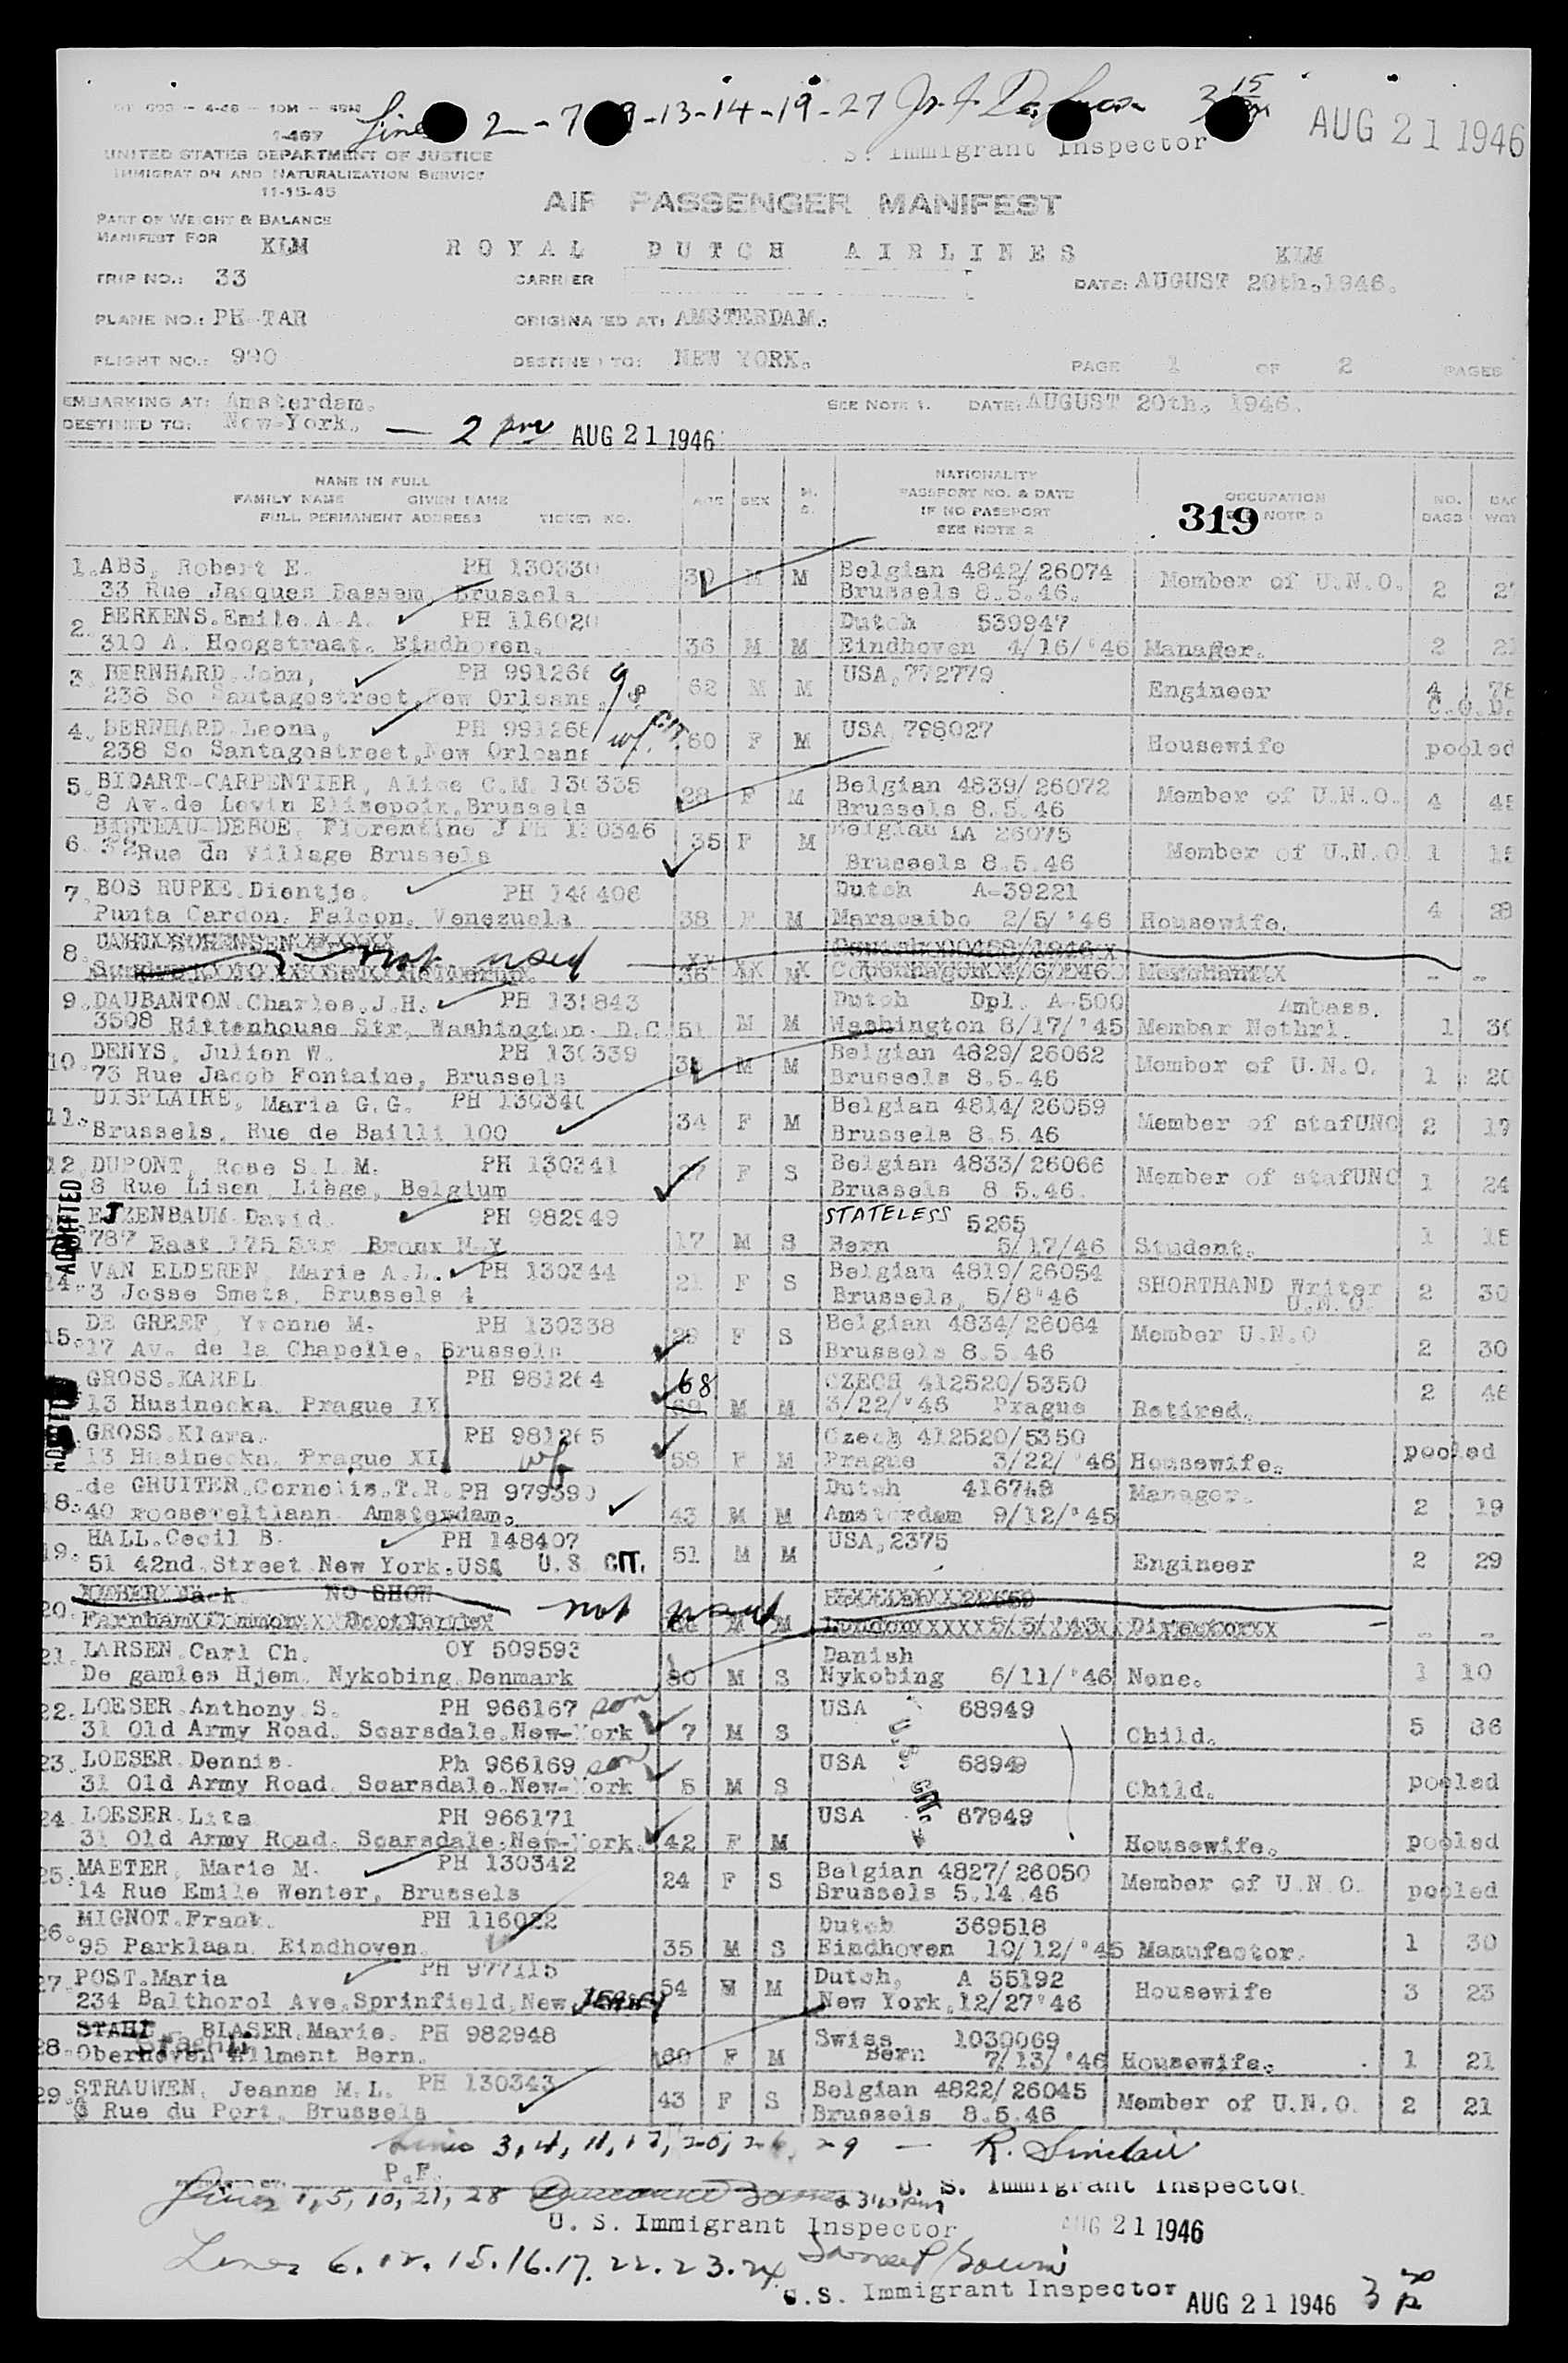 Lines 2-7-9-13-14-19-27
3 15
AUG 21 1946
I-467
UNITED STATES DEPARTMENT OF JUSTICE
IMMIGRATION AND NATURALIZATION SERVICE
11-15-45
U. S. Immigrant Inspector
AIR PASSENGER MANIFEST
PART OF WEIGHT & BALANCE
MANIFEST FOR KLM ROYAL DUTCH AIRLINES KLM
TRIP NO.: 33 CARRIER DATE: AUGUST 20th.1946.
PLANE NO.: PH-TAR ORIGINATED AT: AMSTERDAM.
FLIGHT NO.: 990 DESTINED TO: NEW YORK. PAGE 1 OF 2 PAGES
EMBARKING AT: Amsterdam. SEE NOTE 1. DATE: AUGUST 20th. 1946.
DESTINED TO: New-York. — 2 pm AUG 21 1946
NAME IN FULL
FAMILY NAME GIVEN NAME
FULL PERMANENT ADDRESS TICKET NO.
AGE SEX M. S.
NATIONALITY
PASSPORT NO. & DATE
IF NO PASSPORT
SEE NOTE 2
OCCUPATION
NOTE 3
319
NO. BAGS
1. ABS, Robert E. PH 130330 30 M M Belgian 4842/26074 Member of U.N.O. 2
33 Rue Jacques Bassem, Brussels Brussels 8.5.46.
2. BERKENS.Emile.A.A. PH 11602 36 M M Dutch 539947 Manager. 2
310 A. Hoogstraat. Eindhoven. Eindhoven 4/16/'46
3. BERNHARD.John, PH 991266 62 M M USA,772779 Engineer 4 78
238 So Santagostreet,New Orleans C.O.D.
4. BERNHARD.Leona, PH 991268 wf. CIT 60 F M USA 798027 Housewife pooled
238 So Santagostreet,New Orleans
5. BIDART-CARPENTIER, Alice C.M. 130335 28 F M Belgian 4839/26072 Member of U.N.O. 4
8 Av.de Levin Elisepoix.Brussels Brussels 8.5.46
6. BISTEAU-DEBOE, Florentine J PH 130346 35 F M Belgian LA 26075 Member of U.N.O. 1
32 Rue de Village Brussels Brussels 8.5.46
7. BOS RUPKE.Dientje. PH 148406 38 F M Dutch A-39221 Housewife. 4
Punta Cardon. Falcon. Venezuela Maracaibo 2/5/'46
8. not used
9. DAUBANTON.Charles.J.H. PH 135843 51 M M Dutch Dpl. A-500 Ambass. 1
3508 Rittenhouse Str. Washington. D.C. Washington 8/17/'45 Member Nethrl.
10. DENYS, Julien W. PH 130339 M M Belgian 4829/26062 Member of U.N.O. 1 20
73 Rue Jacob Fontaine, Brussels Brussels 8.5.46
11. DISPLAIRE, Maria G.G. PH 130340 34 F M Belgian 4814/26059 Member of stafUNO 2 17
Brussels, Rue de Bailli 100 Brussels 8.5.46
12. DUPONT, Rose S.L.M. PH 130341 27 F S Belgian 4833/26066 Member of stafUNO 1 24
8 Rue Lisen, Liege, Belgium Brussels 8 5.46.
ADMITTED
EJZENBAUM.David. PH 982949 17 M S STATELESS 5265 Student. 1
787 East 175 Str Bronx N.Y Bern 5/17/46
14. VAN ELDEREN, Marie A.L. PH 130344 21 F S Belgian 4819/26054 SHORTHAND Writer 2 30
3 Josse Smets, Brussels 4 Brussels, 5/8'46 U.N.O.
15. DE GREEF, Yvonne M. PH 130338 29 F S Belgian 4834/26064 Member U.N.O 2 30
17 Av. de la Chapelle, Brussels Brussels 8.5.46
GROSS.KAREL PH 981264 68 M M CZECH 412520/5350 Retired. 2 46
13 Husinecka. Prague IX 3/22/'46 Prague
GROSS.Klara. PH 981265 wf 58 F M Czech 412520/5350 Housewife. pooled
13 Husinecka. Prague XI Prague 3/22/'46
18. de GRUITER.Cornelis.T.R. PH 979390 43 M M Dutch 416748 Manager. 2 19
40 rooseveltlaan. Amsterdam. Amsterdam 9/12/'45
19. HALL.Cecil B. PH 148407 51 M M USA,2375 Engineer 2 29
51 42nd.Street New York.USA U.S CIT.
20. Jack NO SHOW not used
21. LARSEN.Carl Ch. OY 509593 80 M S Danish None. 1 10
De gamles Hjem. Nykobing.Denmark Nykobing 6/11/'46
22. LOESER.Anthony S. PH 966167 son 7 M S USA 68949 Child. 5 86
31 Old Army Road. Scarsdale.New-York
23. LOESER.Dennis. Ph 966169 son 5 M S USA 68949 Child. pooled
31 Old Army Road. Scarsdale.New-York U.S CIT.
24. LOESER.Lita PH 966171 42 F M USA 67949 Housewife. pooled
31 Old Army Road. Scarsdale.New-York.
25. MAETER, Marie M. PH 130342 24 F S Belgian 4827/26050 Member of U.N.O. pooled
14 Rue Emile Wenter, Brussels Brussels 5.14.46
26. MIGNOT.Frank. PH 116022 35 M S Dutch 369518 Manufactor. 1 30
95 Parklaan. Eindhoven. Eindhoven 10/12/'45
27. POST.Maria PH 977115 54 M Dutch, A 55192 Housewife 3 23
234 Balthorol Ave.Sprinfield,New Jersey New York,12/27'46
28. STAHL BLASER.Marie. PH 982948 60 F M Swiss 1030069 Housewife. 1 21
Oberhoven Allment Bern. Bern 7/13/'46
29. STRAUWEN, Jeanne M.L. PH 130343 43 F S Belgian 4822/26045 Member of U.N.O. 2 21
6 Rue du Port. Brussels Brussels 8.5.46
Lines 3,4,11,17,20,26,29 — R. Sinclair
P.F. U. S. Immigrant Inspector
Lines 1,5,10,21,28
U. S. Immigrant Inspector AUG 21 1946
Lines 6.12.15.16.17.22.23.24
U.S. Immigrant Inspector AUG 21 1946 3